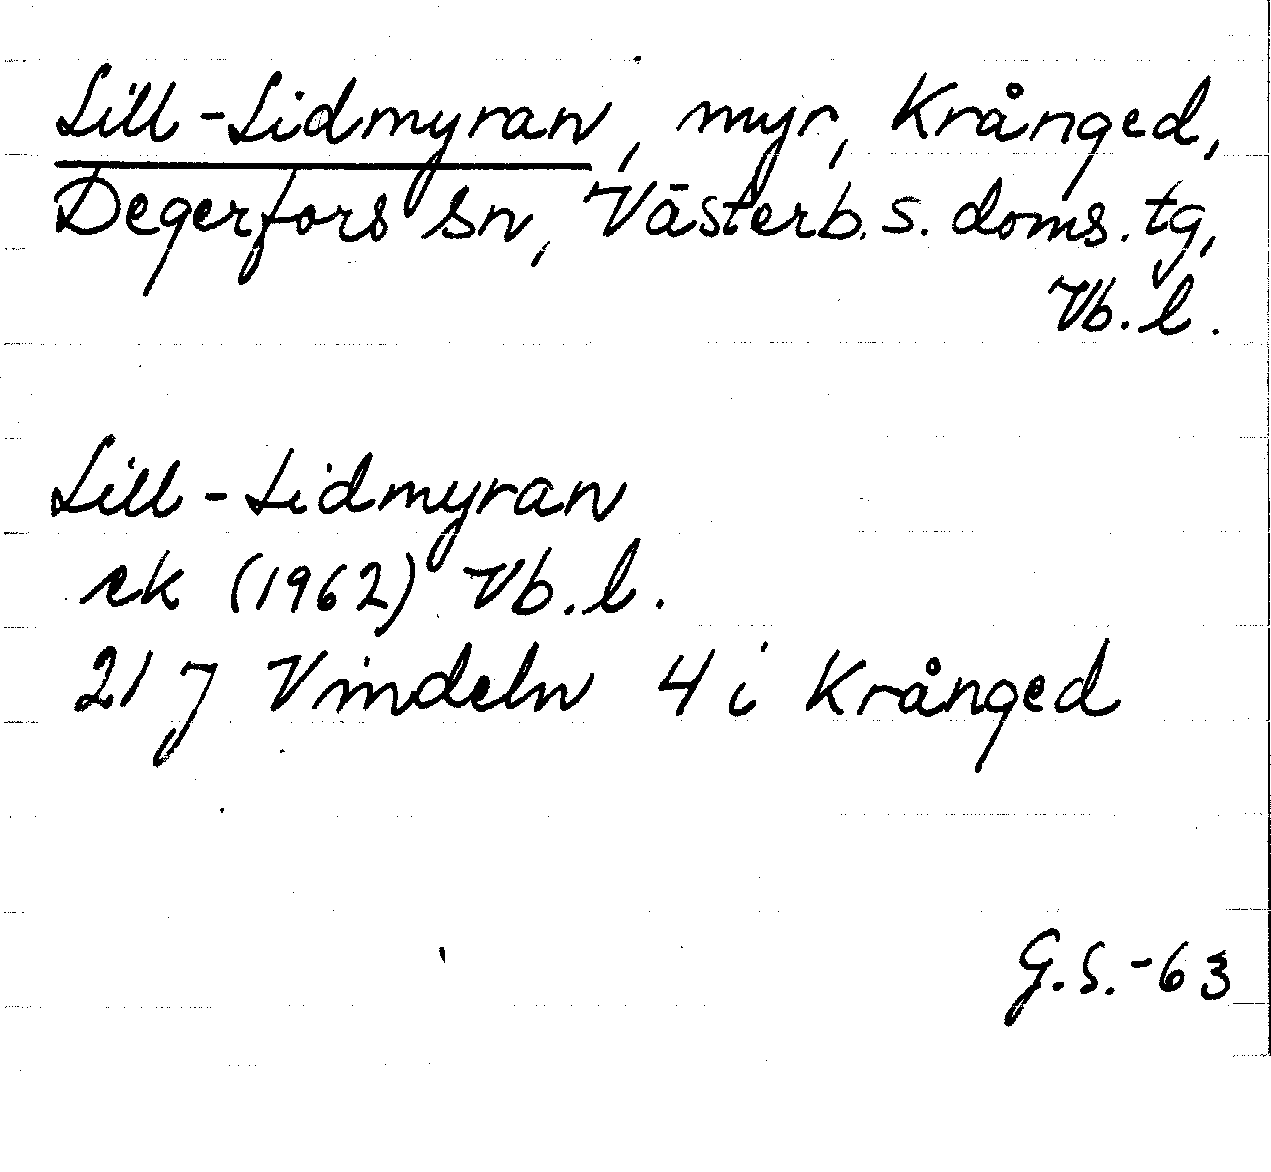 Lill-Lidmyran, myr, Krånged,
Degerfors sn, Västerb. s. doms. tg,
Vb. l.
Lill-Lidmyran
ek (1962) Vb. l.
21 J Vindeln 4 i Krånged
G.S.-63